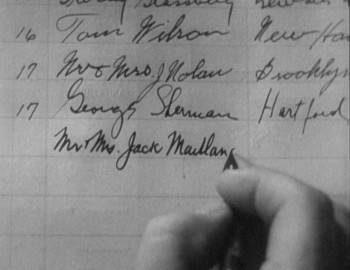 16 Tom Wilson New Ha
17 Mr & Mrs. J Nolan Brooklyn
17 George Sherman Hartford
Mr & Mrs. Jack Maitlan